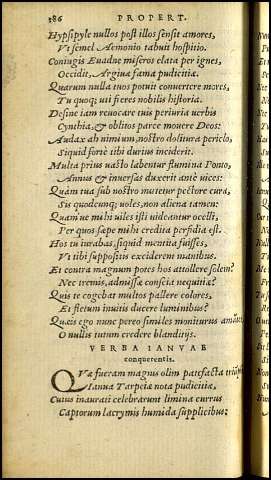 386 PROPERT.
Hypsipyle nullos post illos sensit amores,
Vt semel Aemonio tabuit hospitio.
Coniugis Euadne miseros elata per ignes,
Occidit, Argiuæ fama pudicitiæ.
Quarum nulla tuos potuit conuertere mores,
Tu quoq; uti fieres nobilis historia.
Desine iam reuocare tuis periuria uerbis
Cynthia, & oblitos parce mouere Deos:
Audax ah nimium, nostro dolitura periclo,
Siquid fortè tibi durius inciderit.
Multa prius uasto labentur flumina Ponto,
Annus & inuersas duxerit antè uices:
Quàm tua sub nostro mutetur pectore cura,
Sis quodcunq; uoles, non aliena tamen:
Quamue mihi uiles isti uideantur ocelli,
Per quos sæpe mihi credita perfidia est.
Hos tu iurabas, siquid mentita fuisses,
Vt tibi suppositis exciderent manibus.
Et contra magnum potes hos attollere solem?
Nec tremis, admissæ conscia nequitiæ?
Quis te cogebat multos pallere colores,
Et fletum inuitis ducere luminibus?
Quæis ego nunc pereo similes moniturus amātes
O nullis tutum credere blanditijs.
VERBA IANVAE
conquerentis.
QVæ fueram magnis olim patefacta
Ianua Tarpeiæ nota pudicitiæ,
Cuius inaurati celebrarunt limina currus
Captorum lacrymis humida supplicibus: